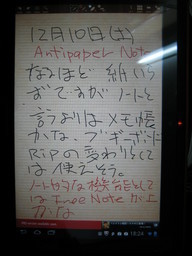 12月10日(土)
Antipaper Note
なるほど 紙いら
ずですがノートと
言うよりはメモ帳
かな、ブギーボード
Ripの変わりとして
は使えそう。
ノート的な機能として
は Free Noteが上
かな
18:24